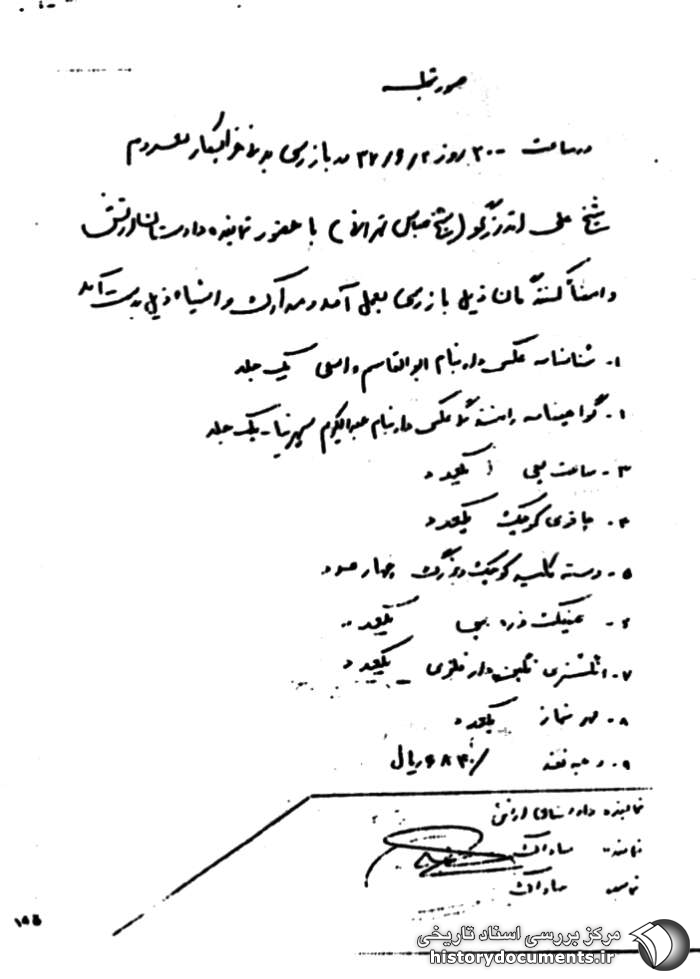 صورتجلسه
در ساعت ۲۰۰۰ روز ۳۷/۶/۲ در بازرسی بدنی خرابکار معدوم
شیخ علی اندرزگو (شیخ عباس تهرانی) با حضور نماینده دادستان ارتش
و امضاء کنندگان ذیل بازرسی بعمل آمد و مدارک و اشیاء ذیل بدست آمد
۱- شناسنامه عکس دار بنام ابوالقاسم واسعی یک جلد
۲- گواهینامه رانندگی عکس دار بنام عبدالکریم سپهرنیا - یک جلد
۳- ساعت مچی یکعدد
۴- چاقوی کوچک یکعدد
۵- دسته کلید کوچک و بزرگ چهار عدد
۶- عینک ذره بینی یکعدد
۷- انگشتری نگین دار فلزی یکعدد
۸- مهر نماز یکعدد
۹- وجه نقد ۶۸۴۰/ ریال
نماینده دادستانی ارتش
نماینده ساواک
نماینده ساواک
۱۵۵
مرکز بررسی اسناد تاریخی
historydocuments.ir